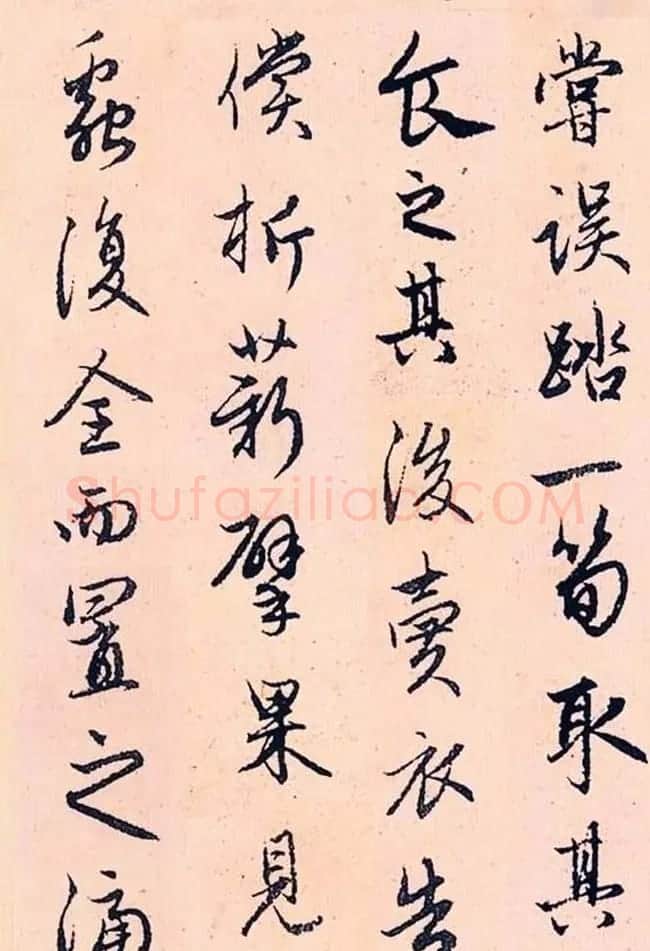 嘗誤踏一筍取其
食之其後賣衣告
償折薪擘果見
蟲復全而置之
Shufaziliao.COM